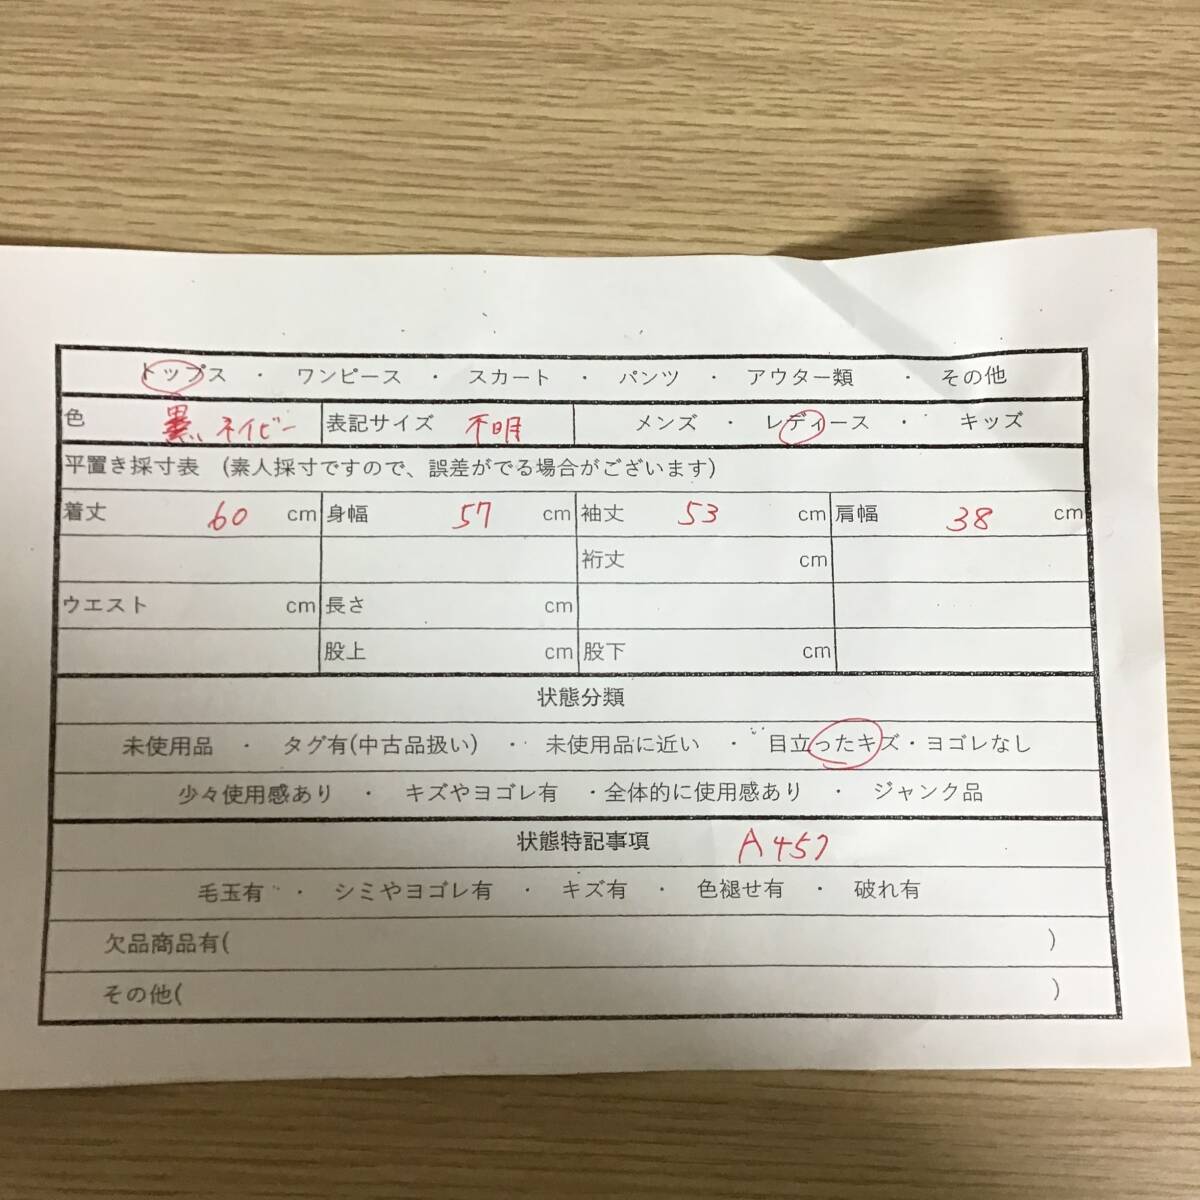 トップス ・ ワンピース ・ スカート ・ パンツ ・ アウター類 ・ その他
色 黒、ネイビー 表記サイズ 不明 メンズ ・ レディース ・ キッズ
平置き採寸表 (素人採寸ですので、誤差がでる場合がございます)
着丈 60 cm 身幅 57 cm 袖丈 53 cm 肩幅 38 cm
裄丈 cm
ウエスト cm 長さ cm
股上 cm 股下 cm
状態分類
未使用品 ・ タグ有(中古品扱い) ・ 未使用品に近い ・ 目立ったキズ・ヨゴレなし
少々使用感あり ・ キズやヨゴレ有 ・全体的に使用感あり ・ ジャンク品
状態特記事項 A457
毛玉有 ・ シミやヨゴレ有 ・ キズ有 ・ 色褪せ有 ・ 破れ有
欠品商品有( )
その他( )